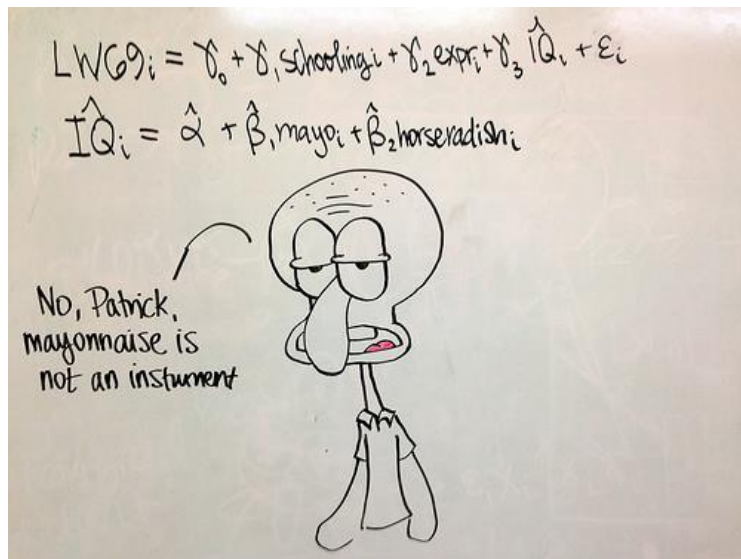 LW69ᵢ = γ₀ + γ₁schoolingᵢ + γ₂exprᵢ + γ₃ÎQᵢ + εᵢ
ÎQᵢ = α̂ + β̂₁mayoᵢ + β̂₂horseradishᵢ
No, Patrick,
mayonnaise is
not an instument